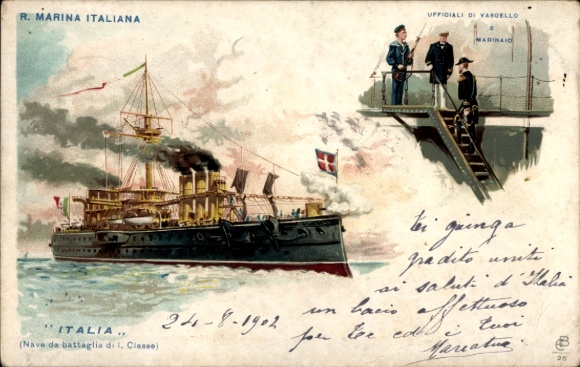 R. MARINA ITALIANA
UFFICIALI DI VASCELLO
E
MARINAIO
Ti giunga
gradito uniti
ai saluti d'Italia
un bacio affettuoso
per te ed i tuoi
24-8-1902
"ITALIA"
(Nave da battaglia di I. Classe)
25